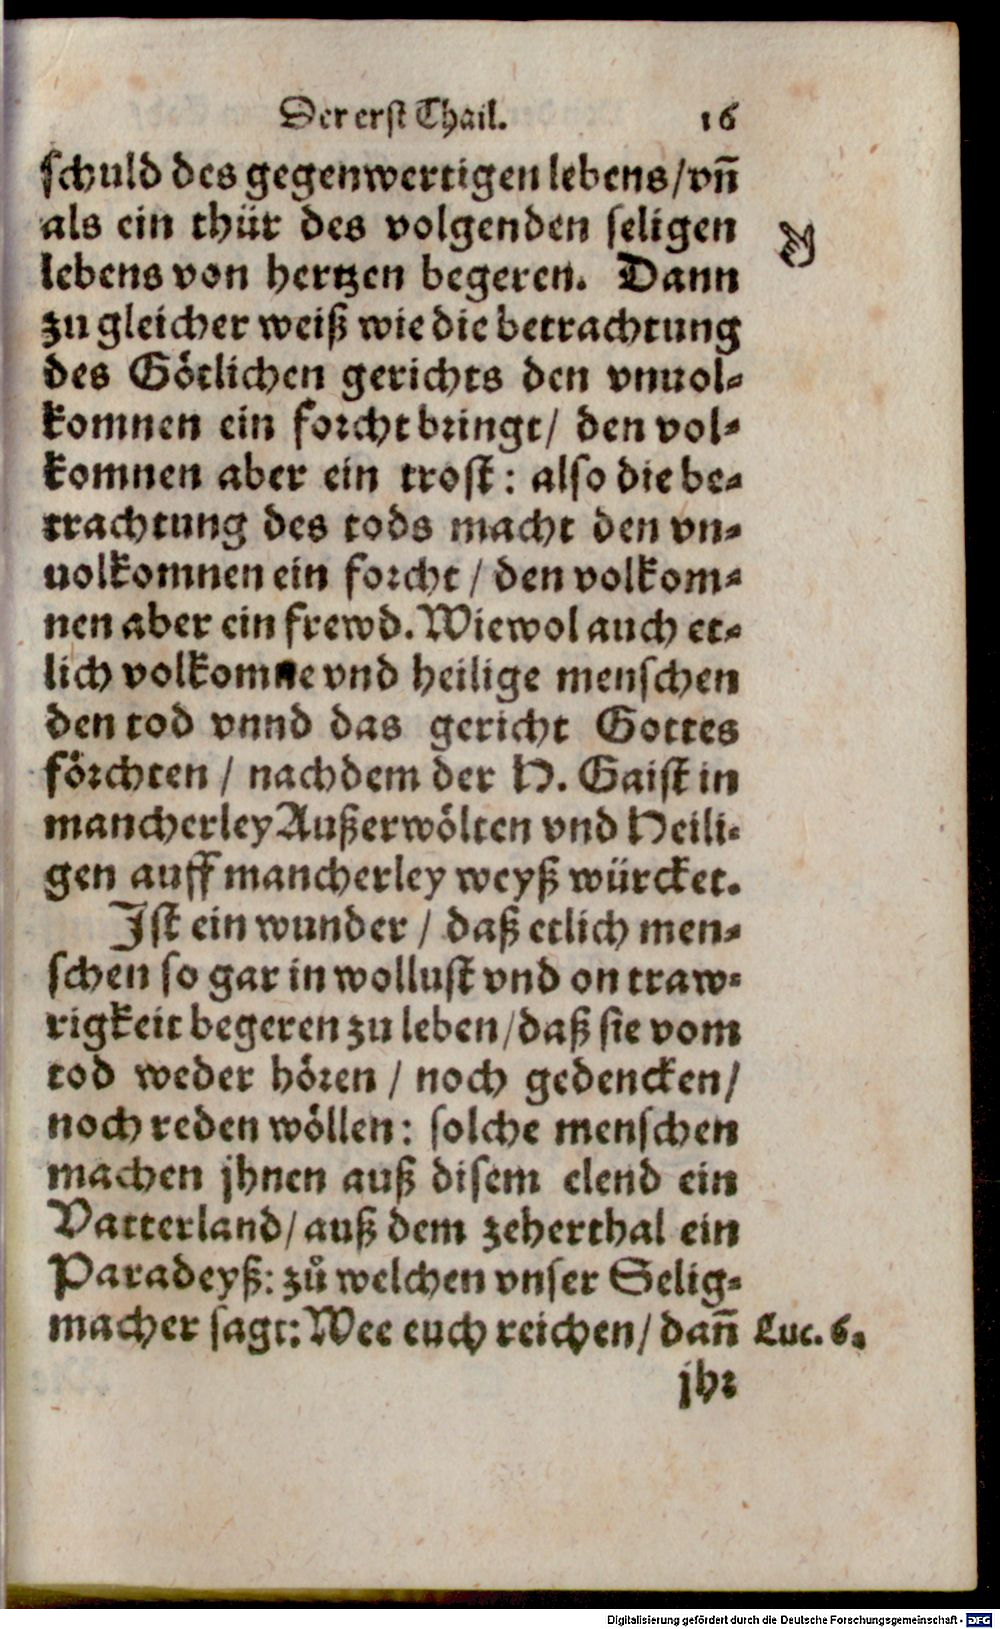 Der erst Thail. 16
schuld des gegenwertigen lebens/ vn̄
als ein thür des volgenden seligen
lebens von hertzen begeren. Dann
zu gleicher weiß wie die betrachtung
des Götlichen gerichts den vnuol⸗
komnen ein forcht bringt/ den vol⸗
komnen aber ein trost: also die be⸗
trachtung des tods macht den vn⸗
uolkomnen ein forcht / den volkom⸗
nen aber ein frewd. Wiewol auch et⸗
lich volkomne vnd heilige menschen
den tod vnnd das gericht Gottes
förchten / nachdem der H. Gaist in
mancherley Außerwölten vnd Heili⸗
gen auff mancherley weyß würcket.
Ist ein wunder / daß etlich men⸗
schen so gar in wollust vnd on traw⸗
rigkeit begeren zu leben/ daß sie vom
tod weder hören / noch gedencken/
noch reden wöllen: solche menschen
machen jhnen auß disem elend ein
Vatterland/ auß dem zeherthal ein
Paradeyß: zů welchen vnser Selig⸗
macher sagt: Wee euch reichen/ dan̄ Luc. 6.
jhr
Digitalisierung gefördert durch die Deutsche Forschungsgemeinschaft - DFG